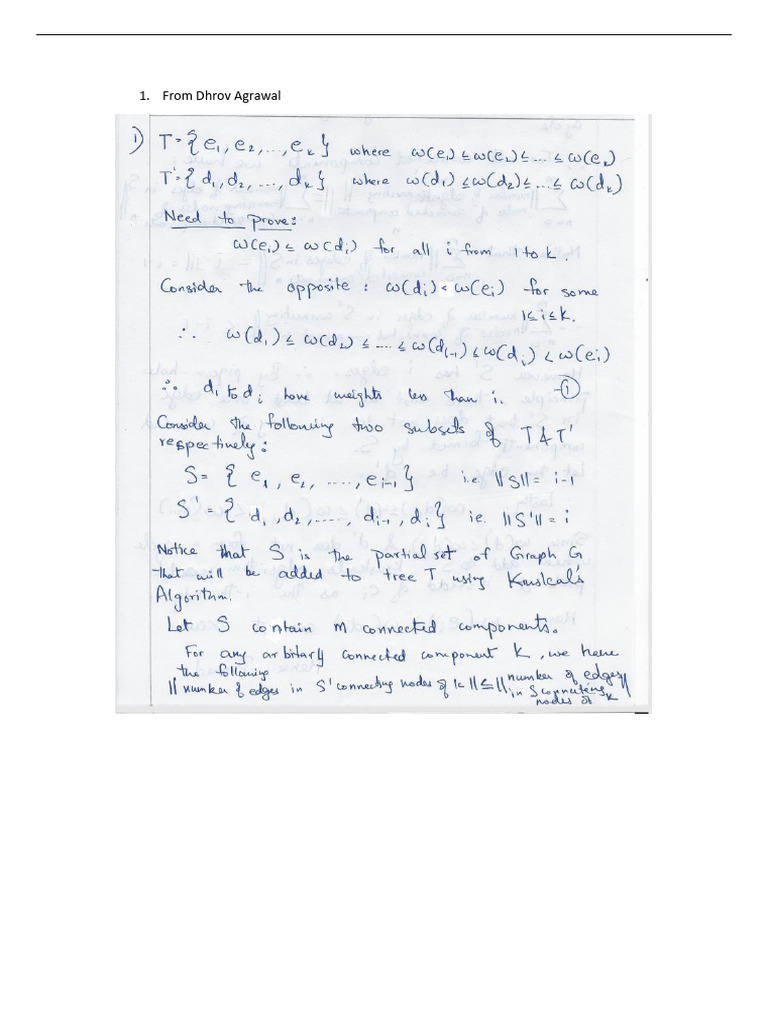 1. From Dhrov Agrawal
1) T = { e1, e2, ..., ek } where ω(e1) ≤ ω(e2) ≤ ... ≤ ω(ek)
T' = { d1, d2, ..., dk } where ω(d1) ≤ ω(d2) ≤ ... ≤ ω(dk)
Need to prove:
ω(ei) ≤ ω(di) for all i from 1 to k.
Consider the opposite : ω(di) < ω(ei) for some
1 ≤ i ≤ k.
∴ ω(d1) ≤ ω(d2) ≤ .... ≤ ω(di-1) ≤ ω(di) < ω(ei)
∴ d1 to di have weights less than i. -①
Consider the following two subsets of T & T'
respectively:
S = { e1, e2, ....., ei-1 } i.e. ||S|| = i-1
S' = { d1, d2, ....., di-1, di } ie. ||S'|| = i
Notice that S is the partial set of Graph G
that will be added to tree T using Kruskal's
Algorithm.
Let S contain m connected components.
For any arbitary connected component K, we have
the following
|| number of edges in S' connecting nodes of k || ≤ || number of edges
in S connecting ||
nodes of k